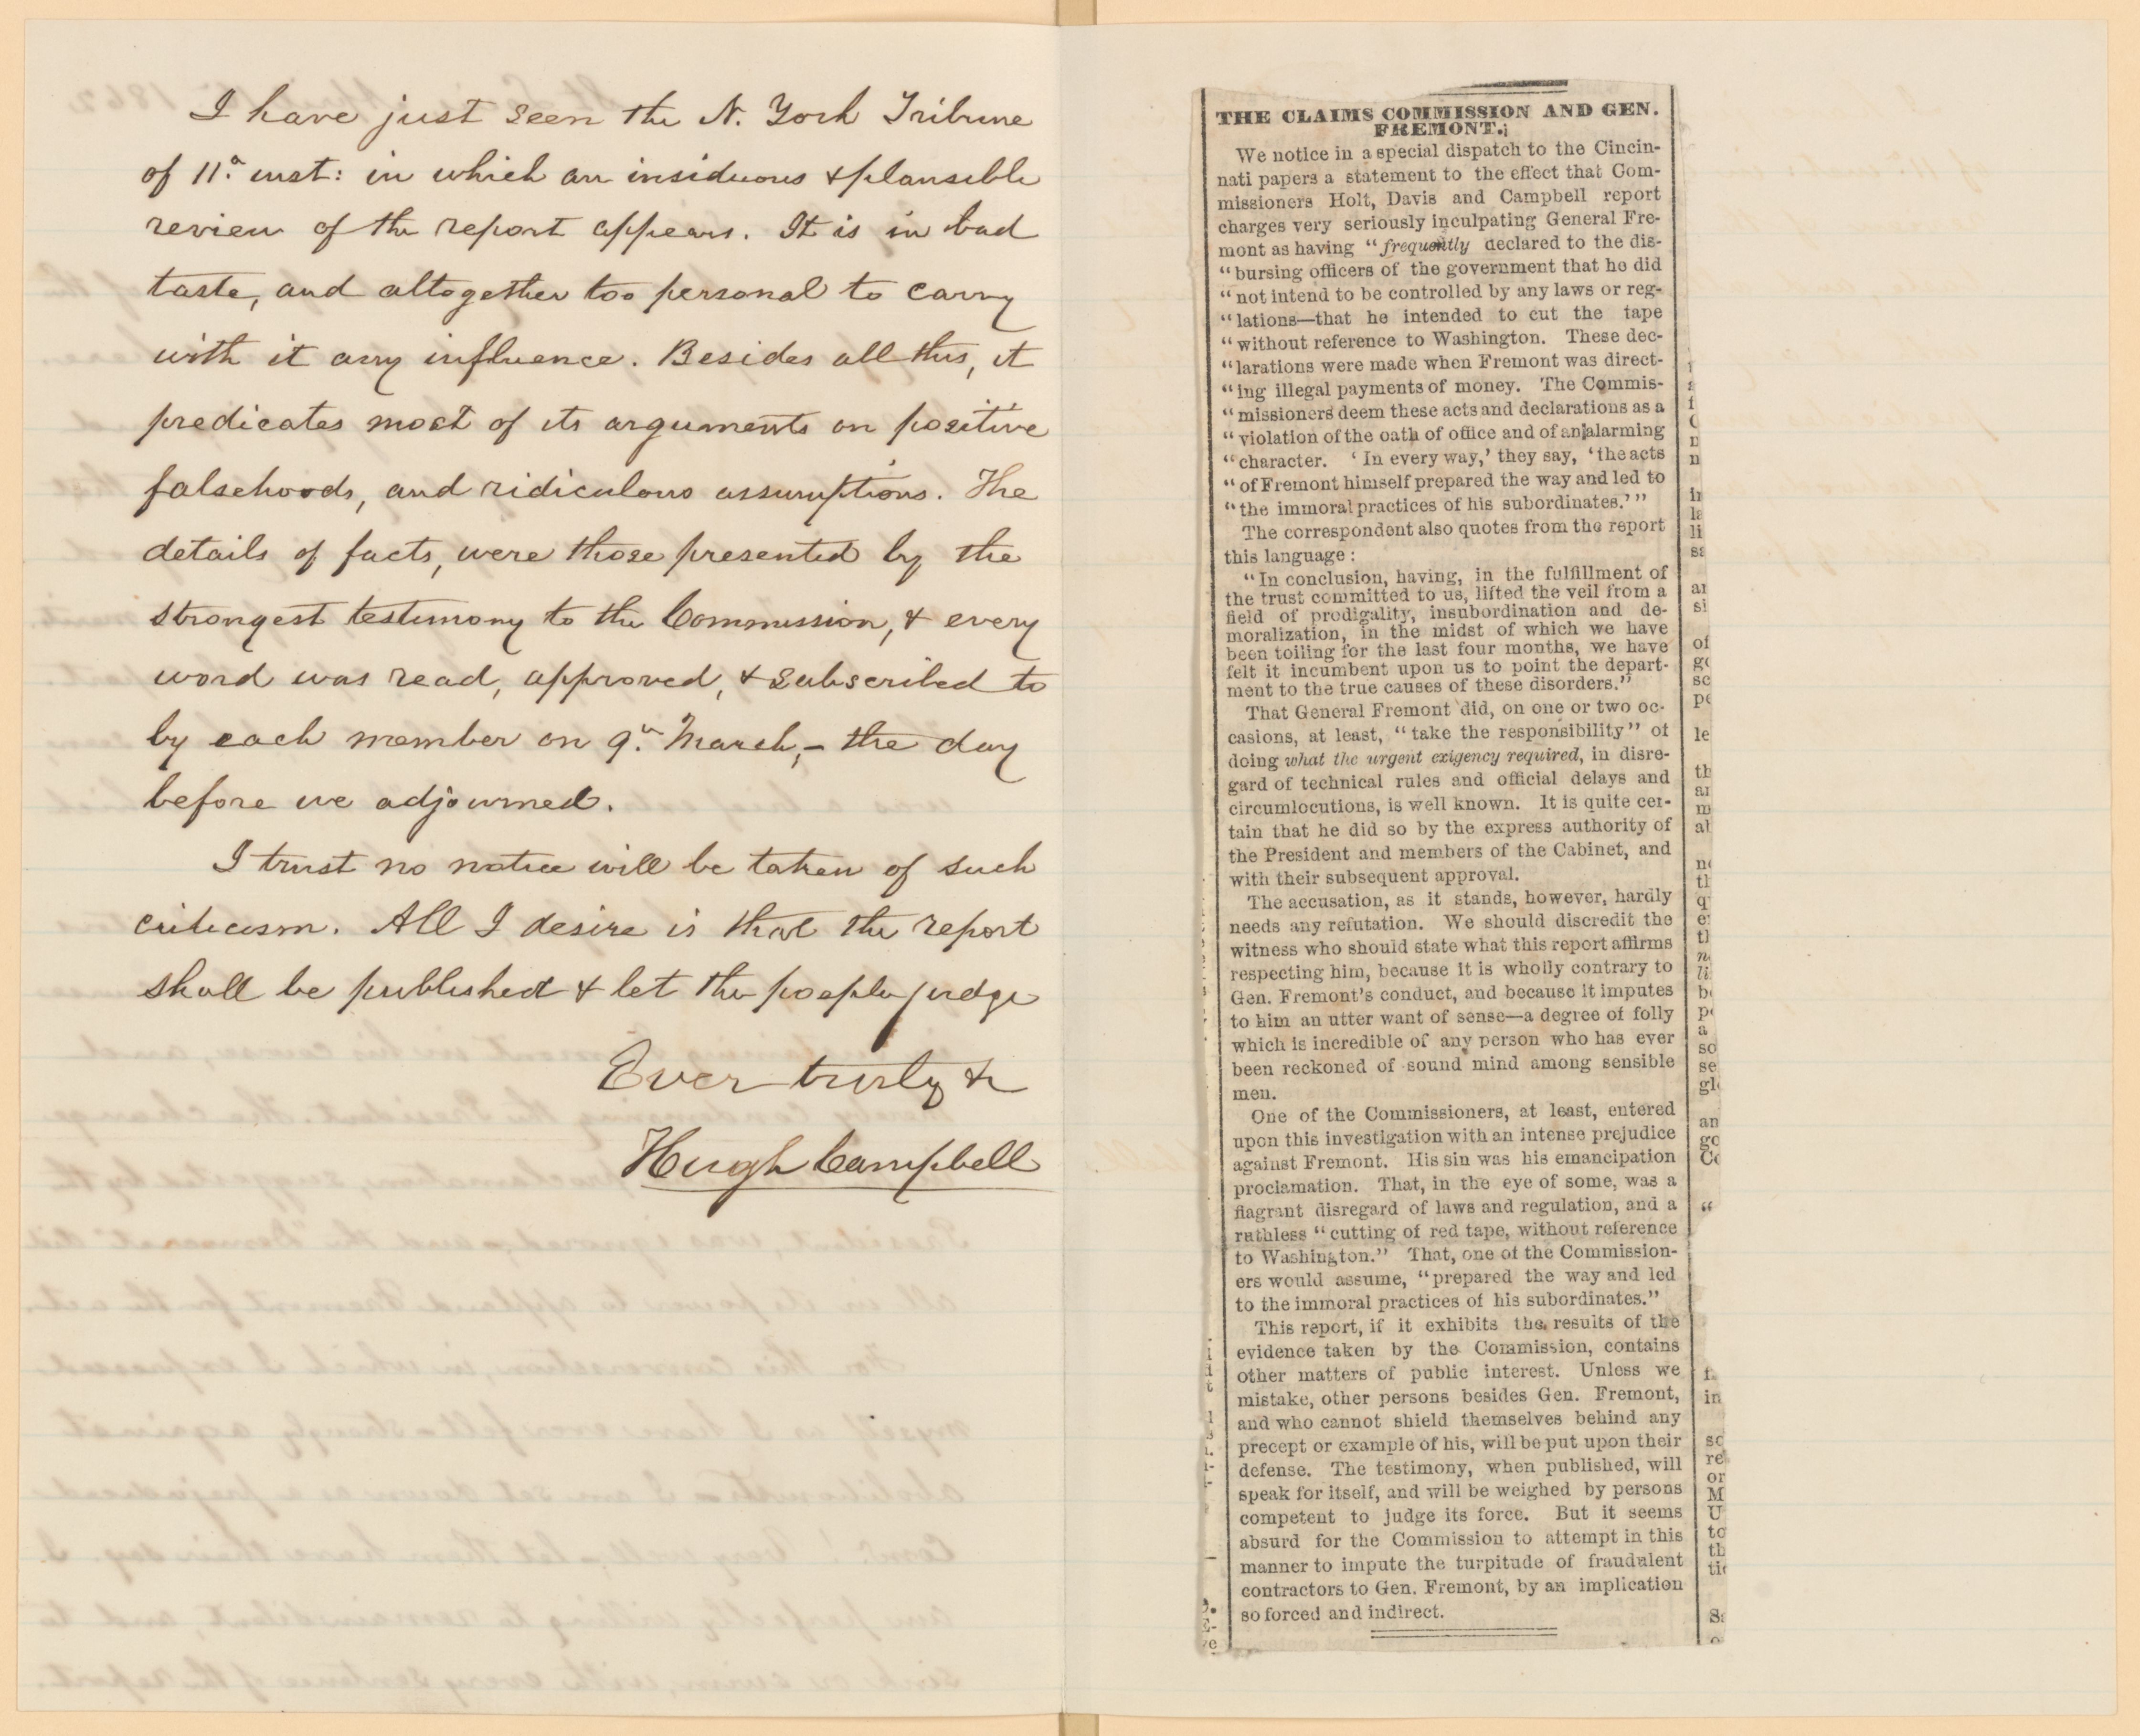 I have just seen the N. York Tribune
of 11th inst: in which an insiduous & plausible
review of the report appears. It is in bad
taste, and altogether too personal to carry
with it any influence. Besides all this, it
predicates most of its arguments on positive
falsehoods, and ridiculous assumptions. The
details of facts, were those presented by the
strongest testimony to the Commission, & every
word was read, approved, & subscribed to
by each member on 9th March, – the day
before we adjourned.
I trust no notice will be taken of such
criticism. All I desire is that the report
shall be published & let the poeple judge
Ever truly &c
Hugh Campbell
THE CLAIMS COMMISSION AND GEN.
FREMONT.
We notice in a special dispatch to the Cincin-
nati papers a statement to the effect that Com-
missioners Holt, Davis and Campbell report
charges very seriously inculpating General Fre-
mont as having "frequently declared to the dis-
"bursing officers of the government that he did
"not intend to be controlled by any laws or reg-
"lations—that he intended to cut the tape
"without reference to Washington. These dec-
"larations were made when Fremont was direct-
"ing illegal payments of money. The Commis-
"missioners deem these acts and declarations as a
"violation of the oath of office and of an alarming
"character. 'In every way,' they say, 'the acts
"of Fremont himself prepared the way and led to
"the immoral practices of his subordinates.'"
The correspondent also quotes from the report
this language:
"In conclusion, having, in the fulfillment of
the trust committed to us, lifted the veil from a
field of prodigality, insubordination and de-
moralization, in the midst of which we have
been toiling for the last four months, we have
felt it incumbent upon us to point the depart-
ment to the true causes of these disorders."
That General Fremont did, on one or two oc-
casions, at least, "take the responsibility" of
doing what the urgent exigency required, in disre-
gard of technical rules and official delays and
circumlocutions, is well known. It is quite cer-
tain that he did so by the express authority of
the President and members of the Cabinet, and
with their subsequent approval.
The accusation, as it stands, however, hardly
needs any refutation. We should discredit the
witness who should state what this report affirms
respecting him, because it is wholly contrary to
Gen. Fremont's conduct, and because it imputes
to him an utter want of sense—a degree of folly
which is incredible of any person who has ever
been reckoned of sound mind among sensible
men.
One of the Commissioners, at least, entered
upon this investigation with an intense prejudice
against Fremont. His sin was his emancipation
proclamation. That, in the eye of some, was a
flagrant disregard of laws and regulation, and a
ruthless "cutting of red tape, without reference
to Washington." That, one of the Commission-
ers would assume, "prepared the way and led
to the immoral practices of his subordinates."
This report, if it exhibits the results of the
evidence taken by the Commission, contains
other matters of public interest. Unless we
mistake, other persons besides Gen. Fremont,
and who cannot shield themselves behind any
precept or example of his, will be put upon their
defense. The testimony, when published, will
speak for itself, and will be weighed by persons
competent to judge its force. But it seems
absurd for the Commission to attempt in this
manner to impute the turpitude of fraudulent
contractors to Gen. Fremont, by an implication
so forced and indirect.